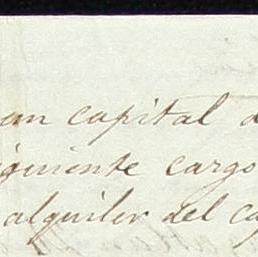 un capital d
iguiente cargo
alquiler del ca